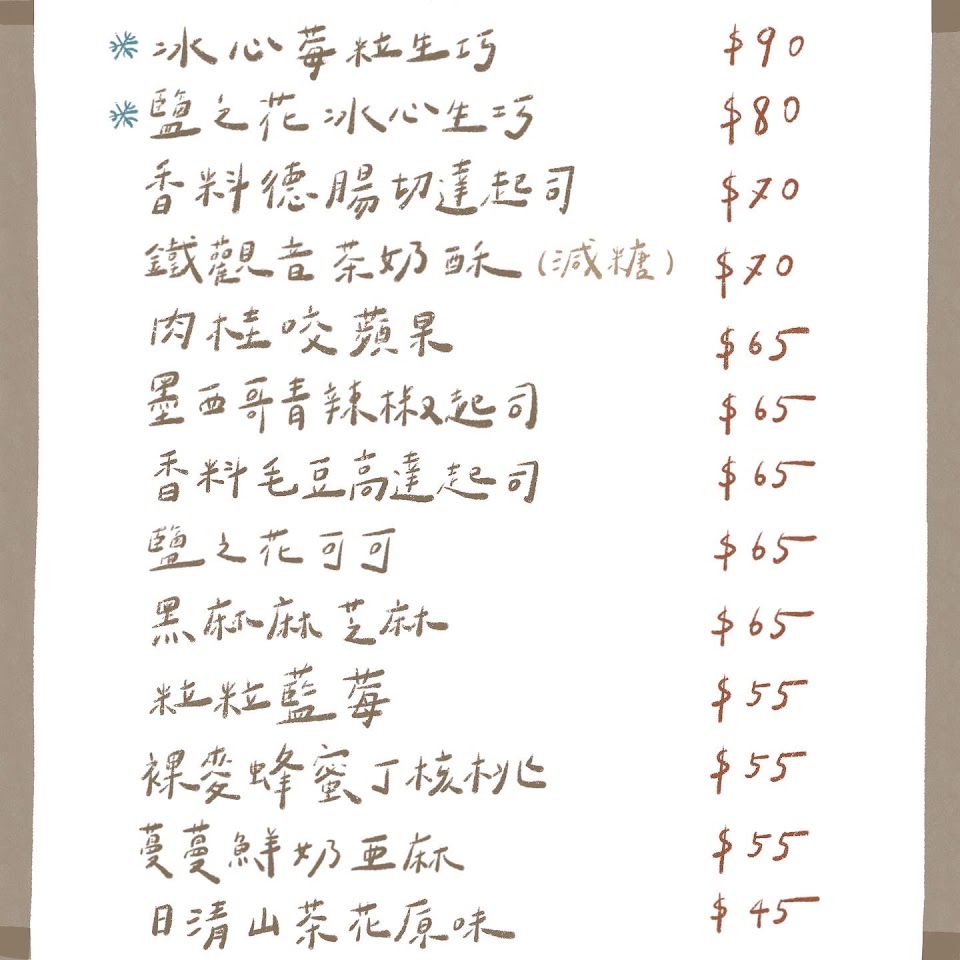 冰心莓粒生巧 $90
鹽之花冰心生巧 $80
香料德腸切達起司 $70
鐵觀音茶奶酥(減糖) $70
肉桂咬蘋果 $65
墨西哥青辣椒起司 $65
香料毛豆高達起司 $65
鹽之花可可 $65
黑麻麻芝麻 $65
粒粒藍莓 $55
裸麥蜂蜜丁核桃 $55
蔓蔓鮮奶亞麻 $55
日清山茶花原味 $45